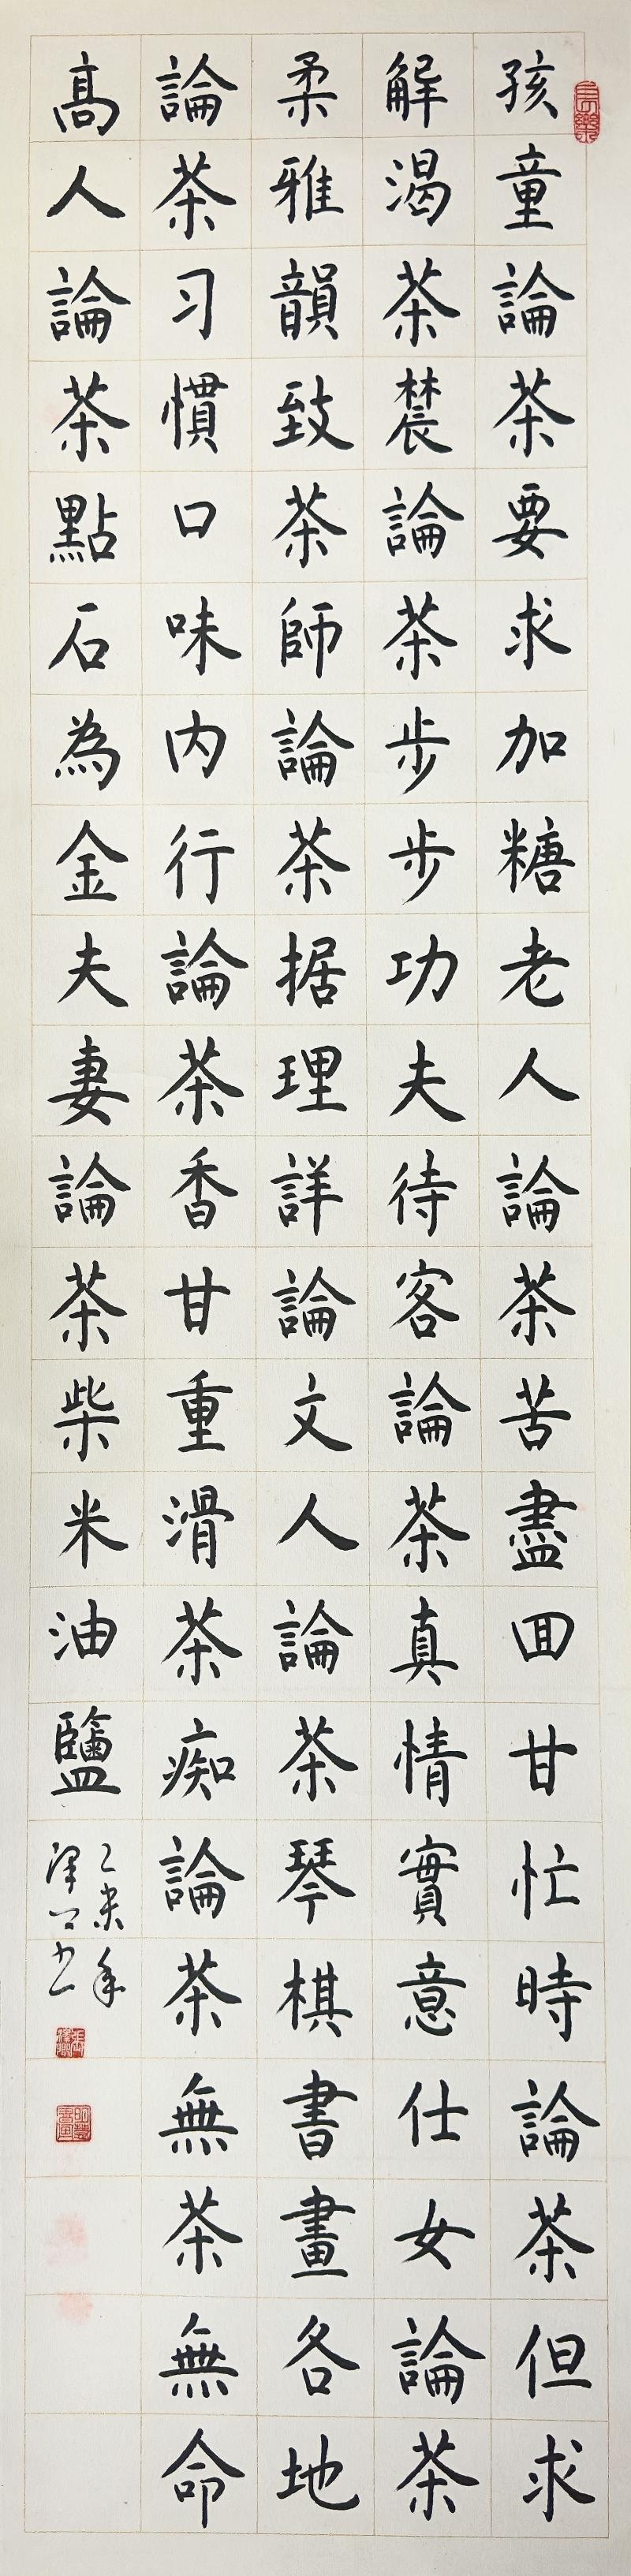 孩童論茶要求加糖老人論茶苦盡回甘忙時論茶但求
解渴茶農論茶步步功夫待客論茶真情實意仕女論茶
柔雅韻致茶師論茶据理詳論文人論茶琴棋書畫各地
論茶习慣口味内行論茶香甘重滑茶痴論茶無茶無命
高人論茶點石為金夫妻論茶柴米油鹽
乙未年